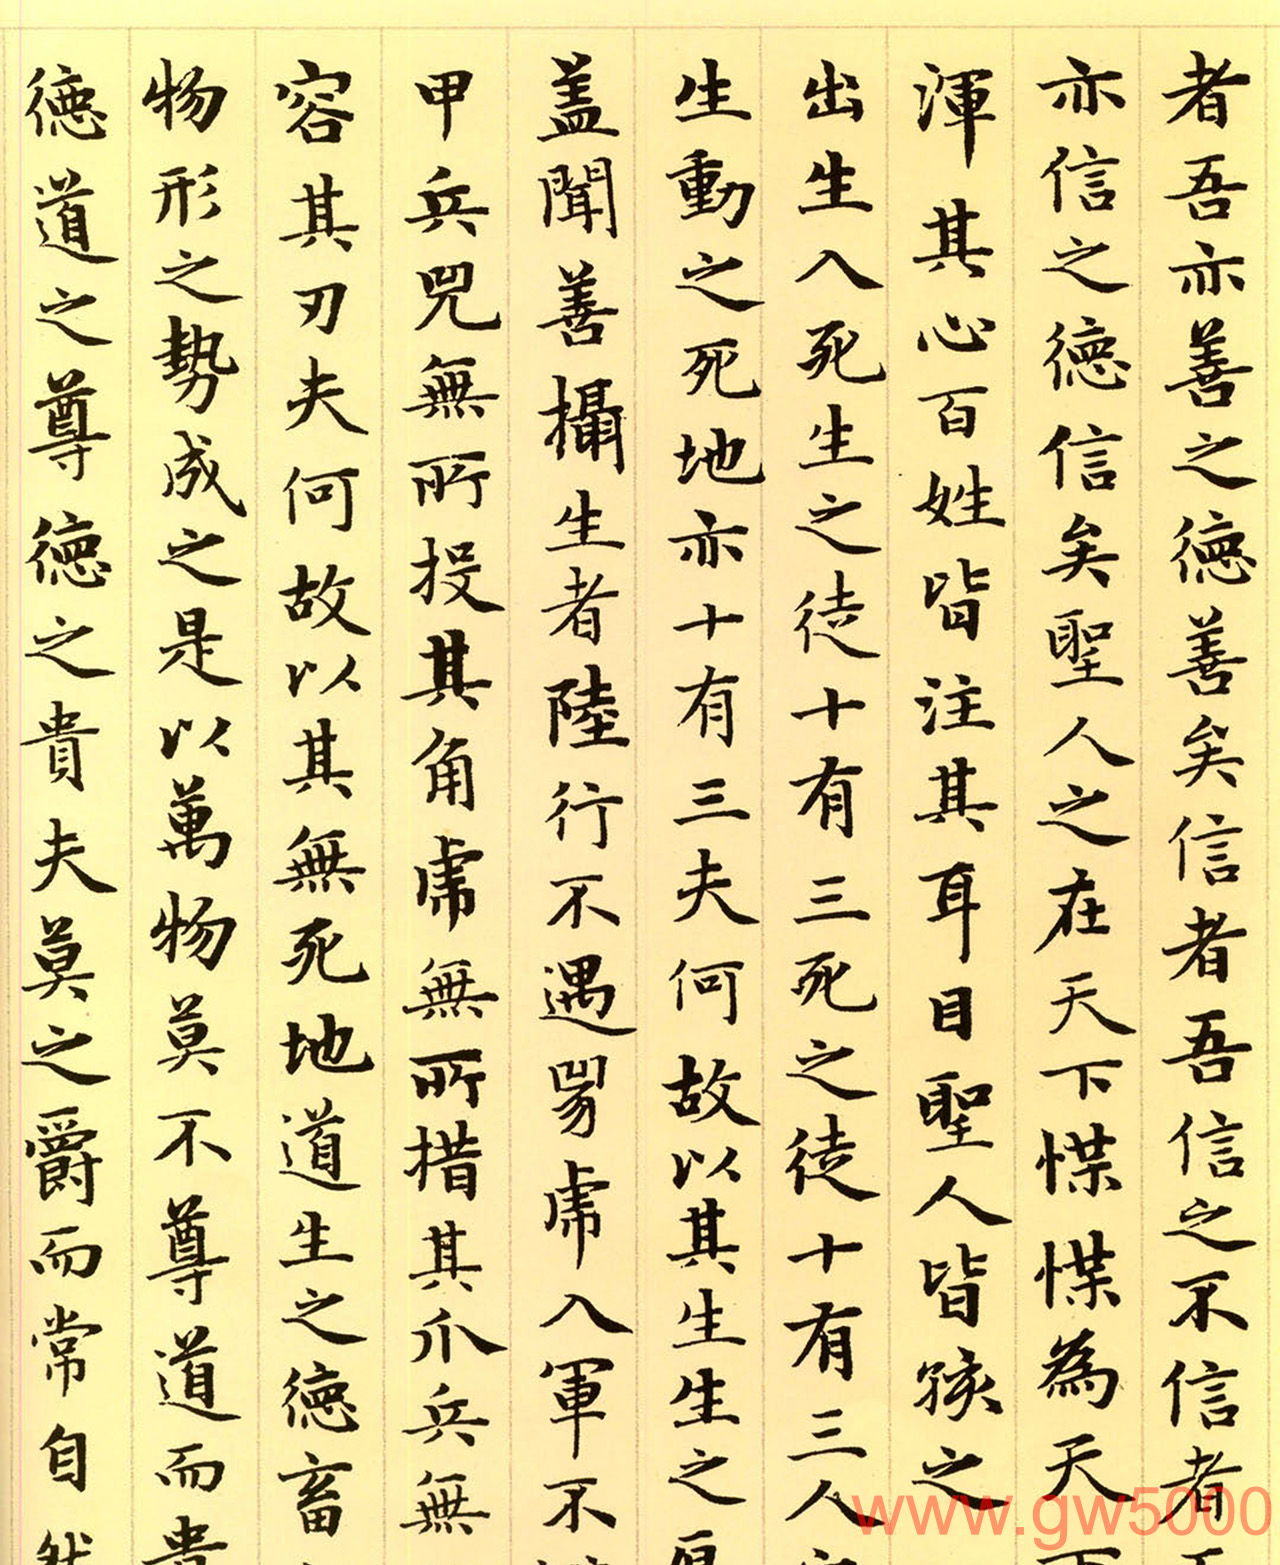 者吾亦善之德善矣信者吾信之不信者
亦信之德信矣聖人之在天下惵惵為天
渾其心百姓皆注其耳目聖人皆孩之
出生入死生之徒十有三死之徒十有三人
生動之死地亦十有三夫何故以其生生之
蓋聞善攝生者陸行不遇兕虎入軍不
甲兵兕無所投其角虎無所措其爪兵無
容其刃夫何故以其無死地道生之德畜
物形之勢成之是以萬物莫不尊道而貴
德道之尊德之貴夫莫之爵而常自然
www.gw5000